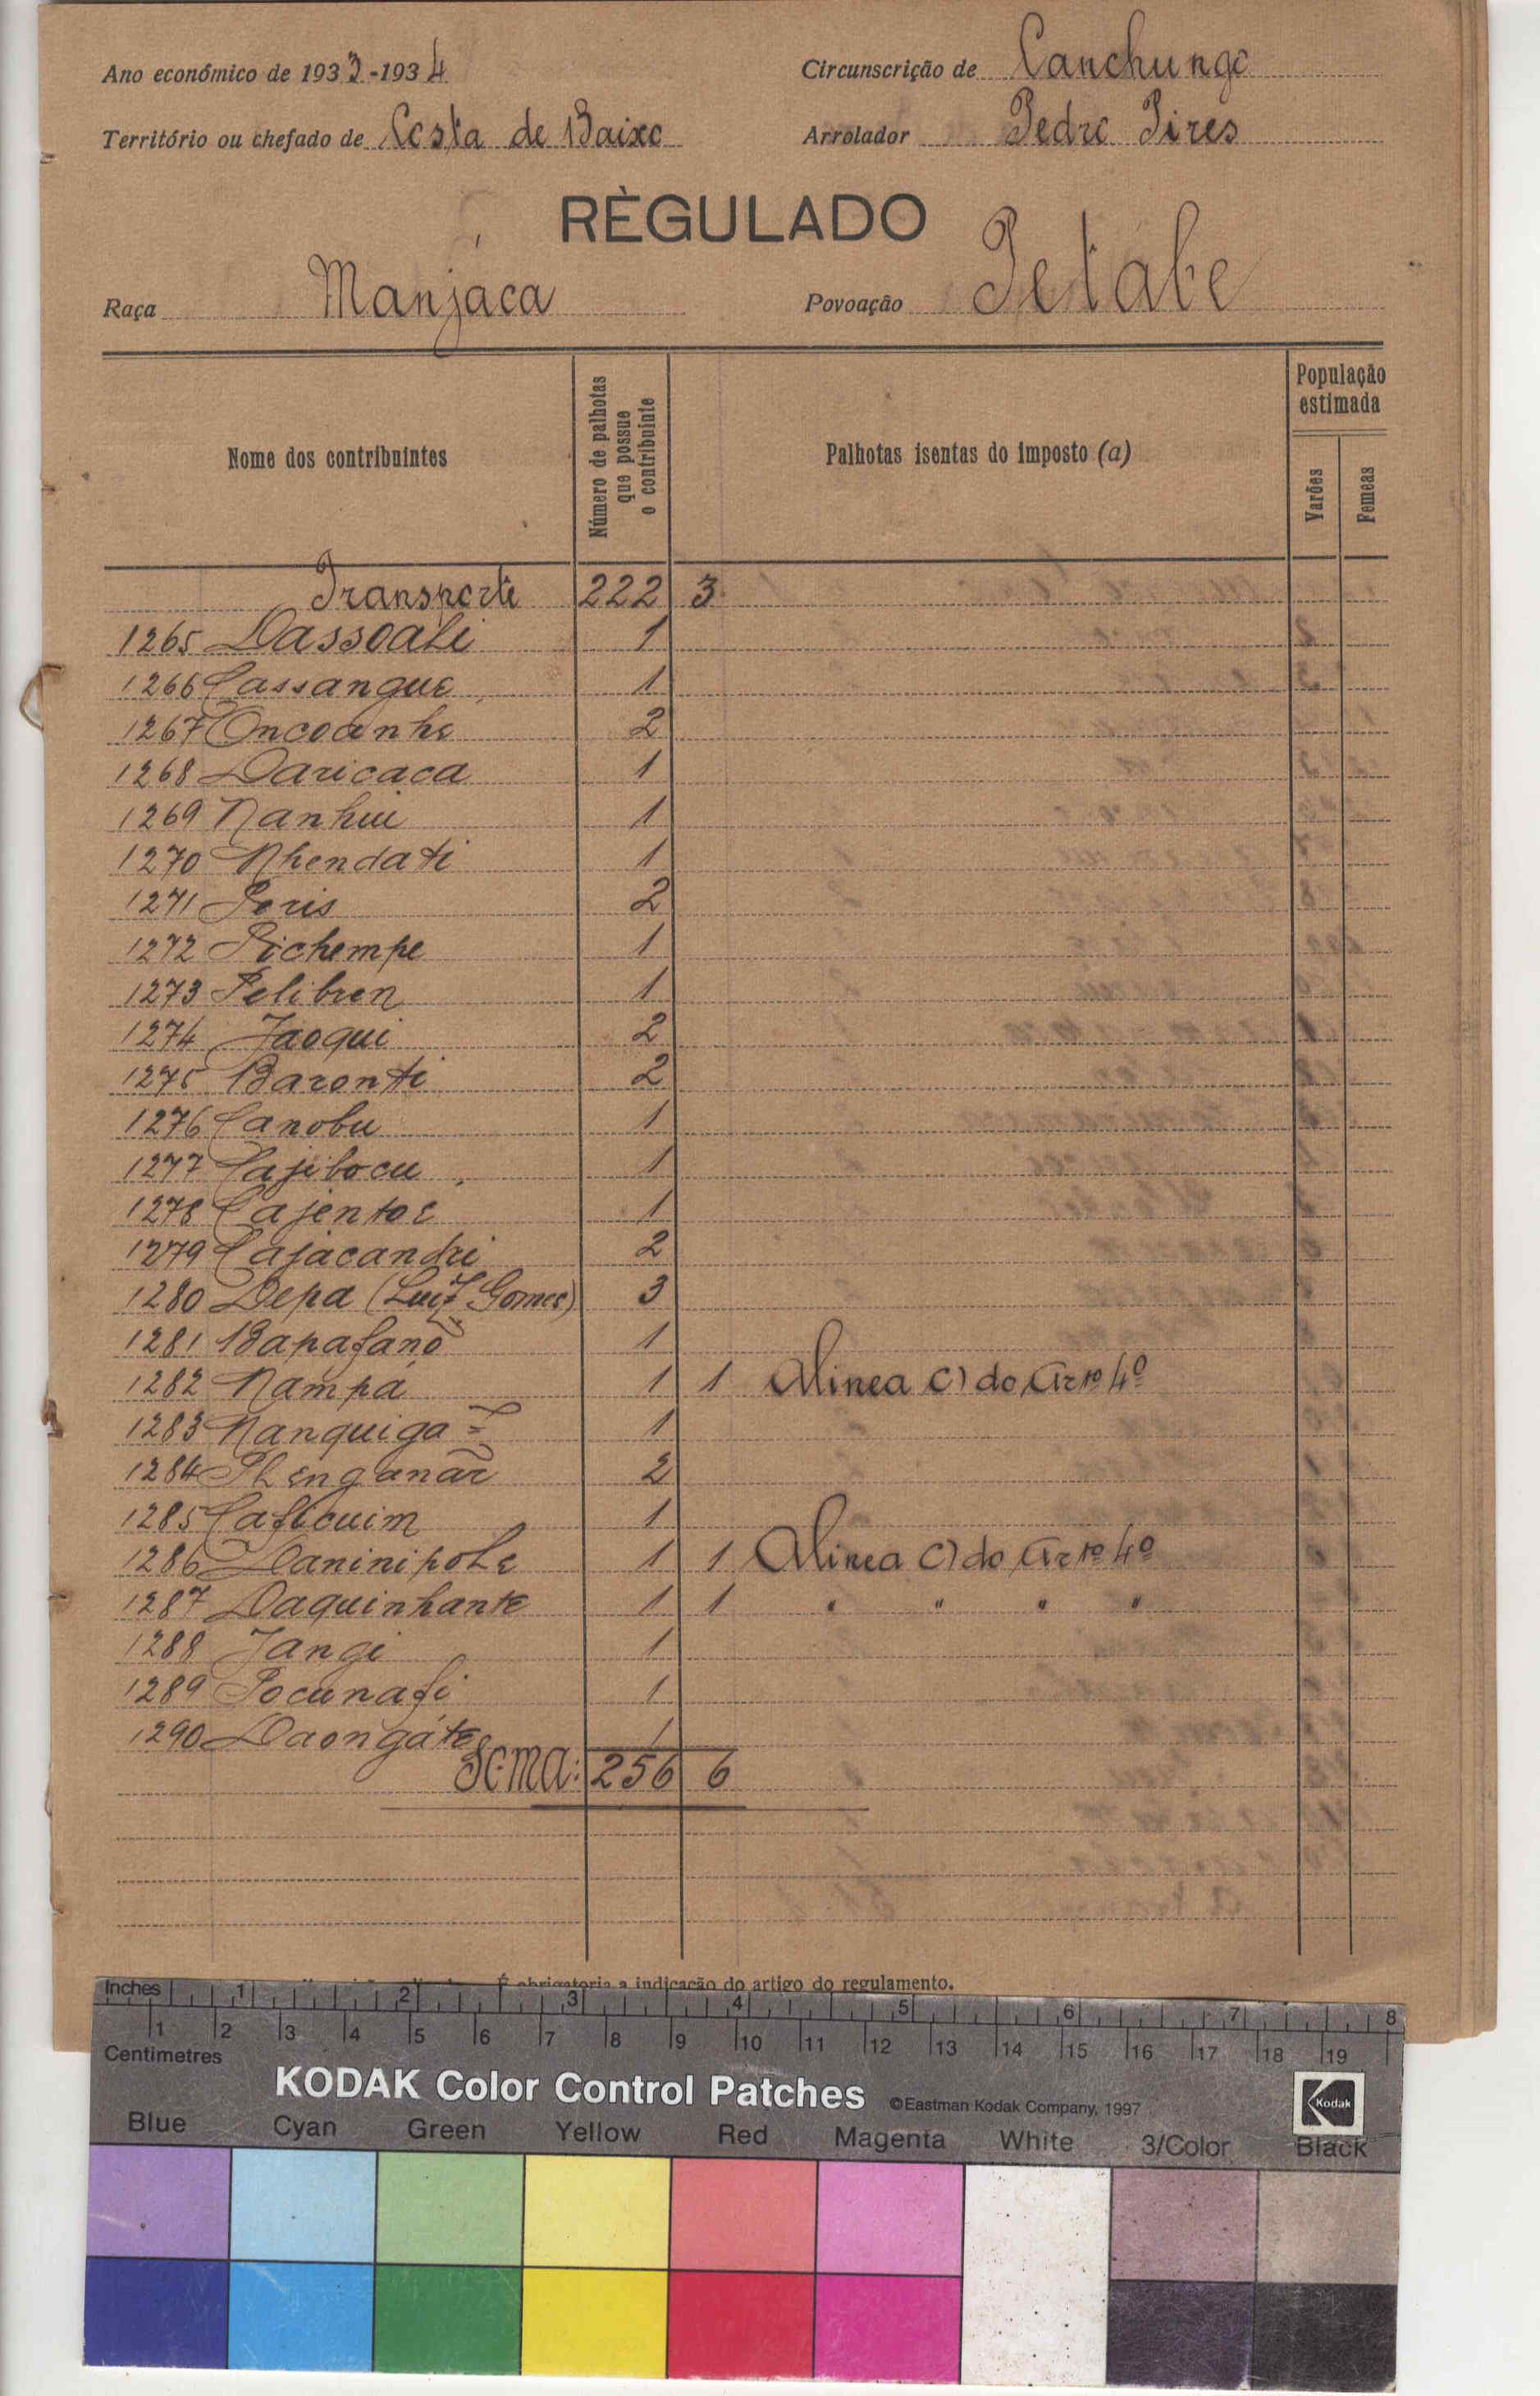 Ano económico de 1933-1934 Circunscrição de Canchungo
Território ou chefado de Costa de Baixo Arrolador Pedro Pires
RÈGULADO
Raça Manjaca Povoação Petabe
Nome dos contribuintes
Número de palhotas que possue o contribuinte
Palhotas isentas do imposto (a)
População estimada
Varões
Femeas
Transporte 222 3
1265 Dassoali 1
1266 Cassangue 1
1267 Oncoanhe 2
1268 Daricaca 1
1269 Nanhui 1
1270 Nhendati 1
1271 Peris 2
1272 Pichempe 1
1273 Felibren 1
1274 Jaoqui 2
1275 Baronti 2
1276 Canobu 1
1277 Cajibocu 1
1278 Cajentoe 1
1279 Cajacandri 2
1280 Depa (Luiz Gomes) 3
1281 Bapafano 1
1282 Nampá 1 1 Alinea C) do Artº 4º
1283 Nanquiga 1
1284 Phenganar 2
1285 Caficuim 1
1286 Daninipole 1 1 Alinea C) do Artº 4º
1287 Daquinhante 1 1 " " " "
1288 Jangi 1
1289 Pocunafi 1
1290 Daongáte 1
Soma: 256 6
É obrigatoria a indicação do artigo do regulamento.
Inches 1 2 3 4 5 6 7 8
1 2 3 4 5 6 7 8 9 10 11 12 13 14 15 16 17 18 19
Centimetres
KODAK Color Control Patches ©Eastman Kodak Company, 1997 Kodak
Blue Cyan Green Yellow Red Magenta White 3/Color Black